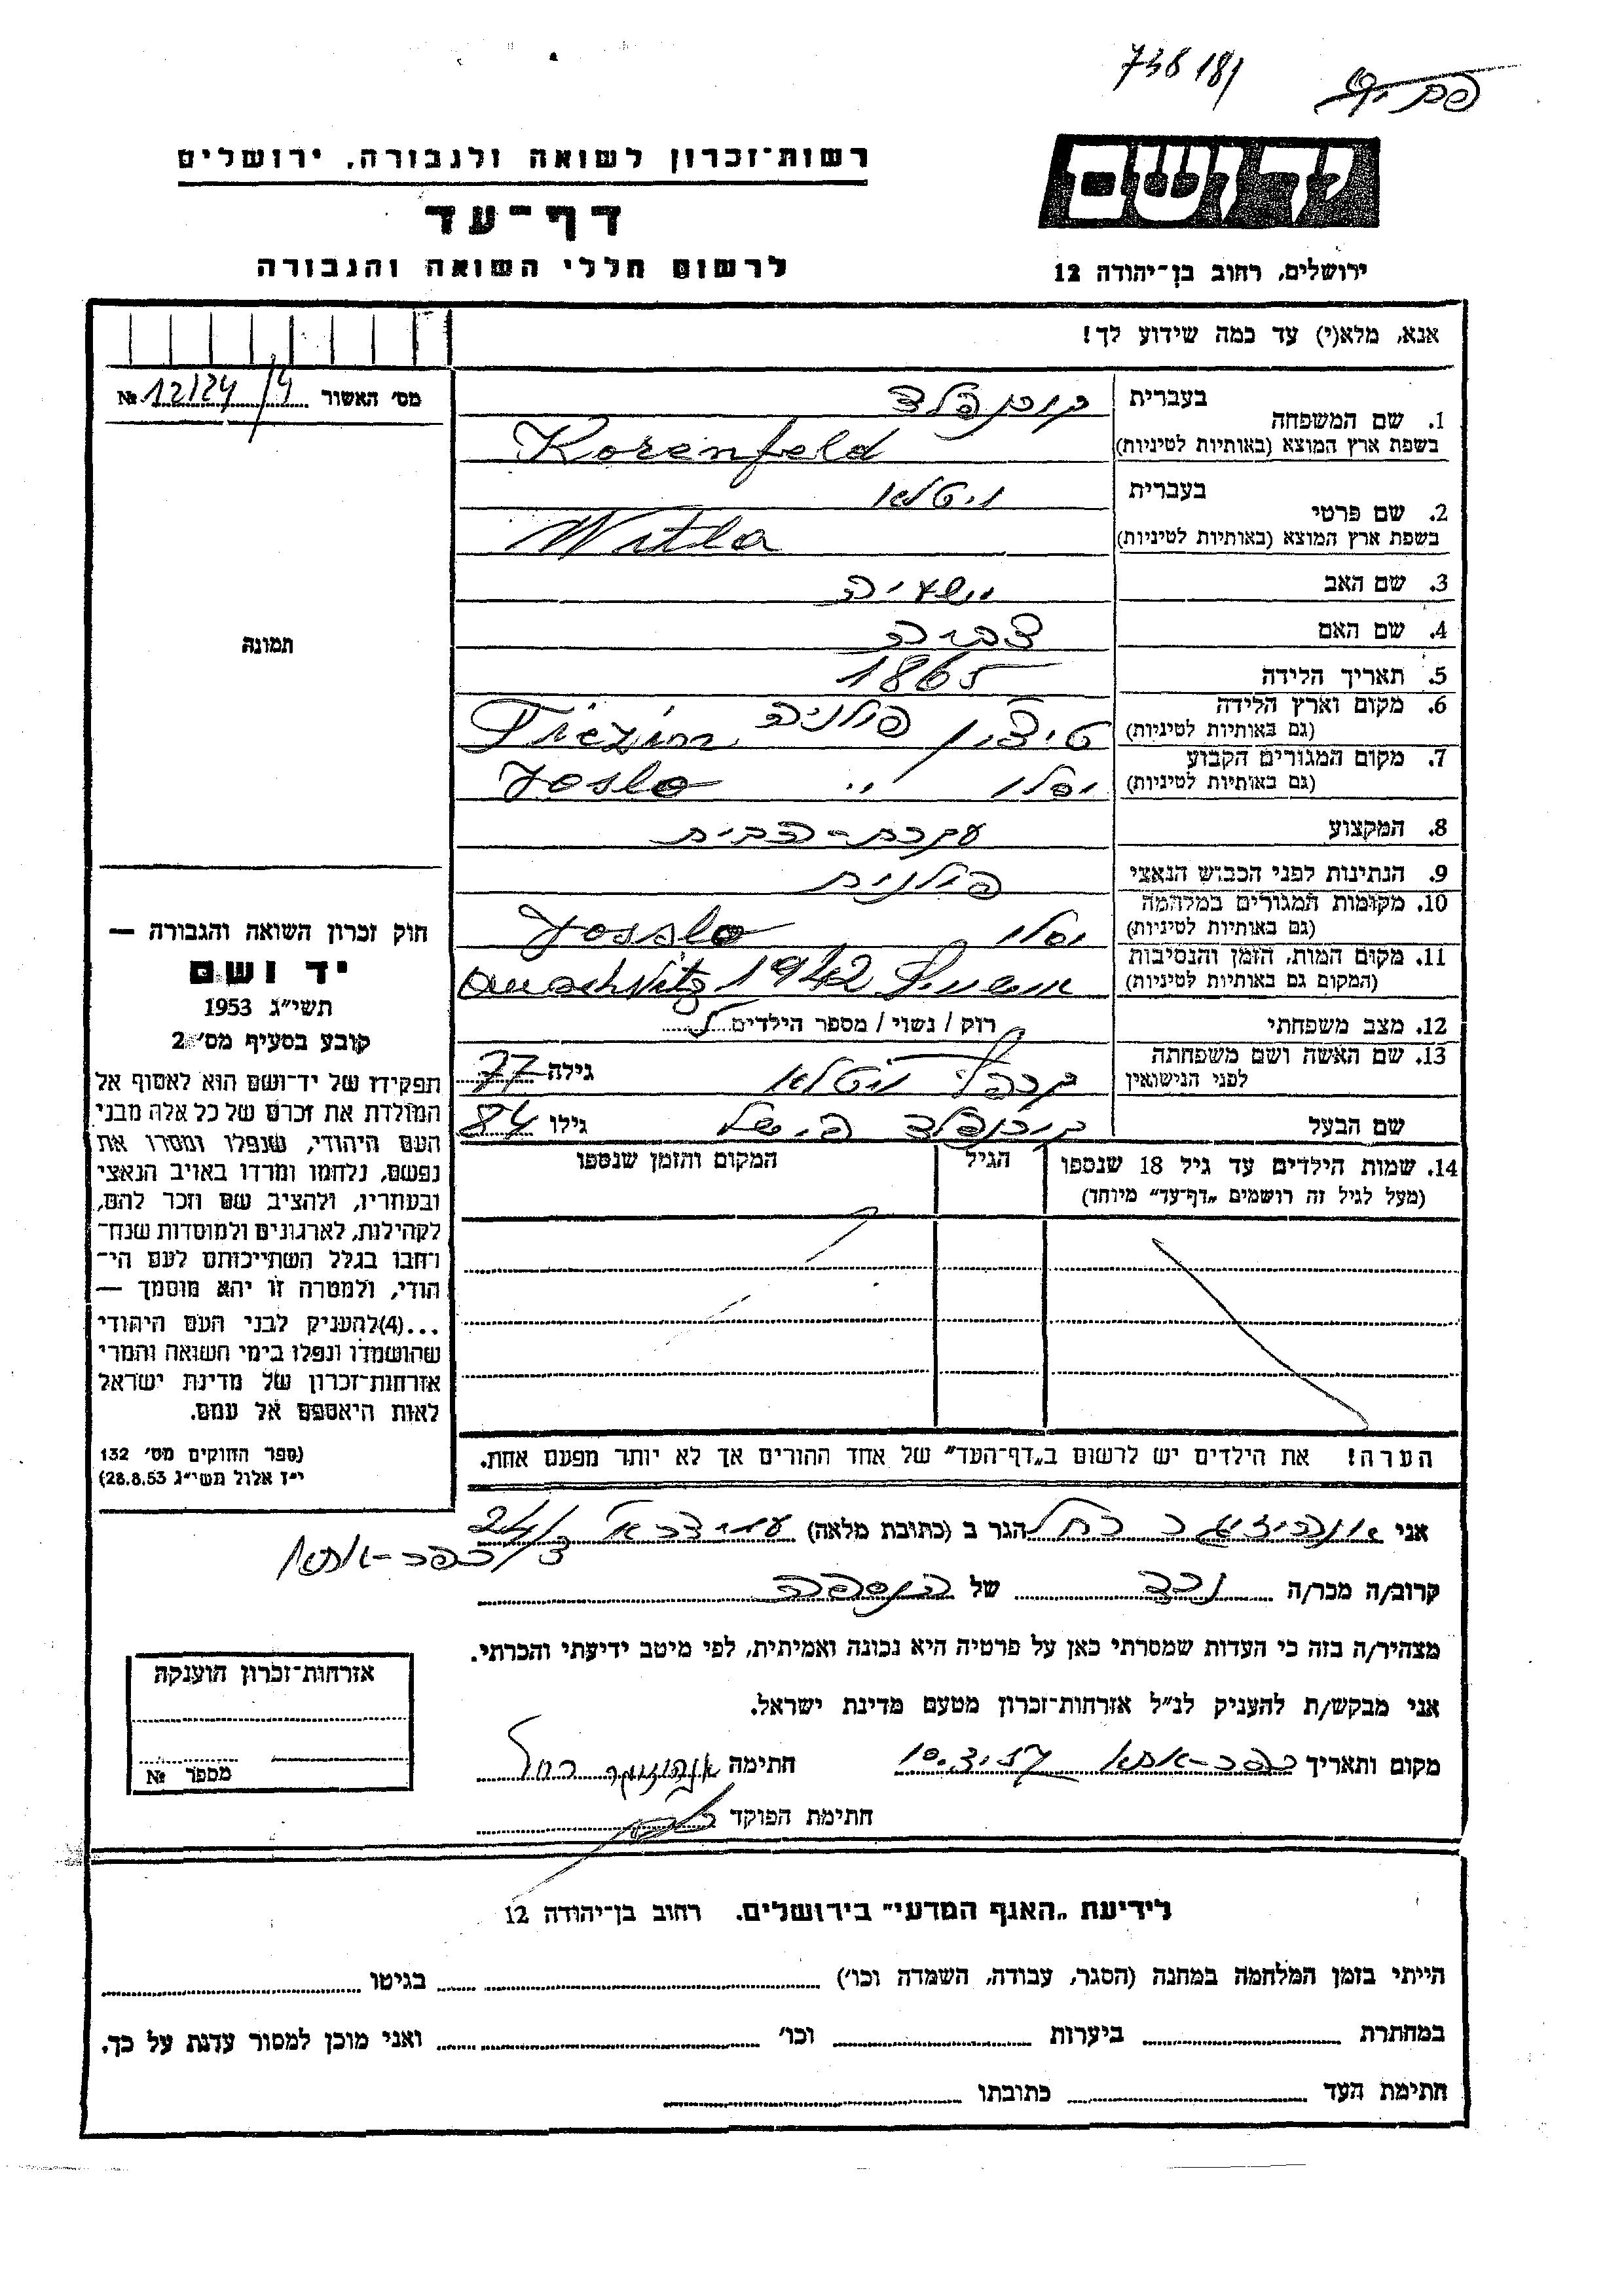 738181
יד ושם
רשות־זכרון לשואה ולגבורה, ירושלים
דף־עד
לרשום חללי השואה והגבורה
ירושלים, רחוב בן־יהודה 12
אנא, מלא(י) עד כמה שידוע לך!
מס׳ האשור 12124/4 №
1. שם המשפחה
בעברית קורנפלד
בשפת ארץ המוצא (באותיות לטיניות) Korenfeld
2. שם פרטי
בעברית ויטלא
בשפת ארץ המוצא (באותיות לטיניות) Witla
3. שם האב ישעיה
4. שם האם צביה
5. תאריך הלידה 1865
6. מקום וארץ הלידה
(גם באותיות לטיניות) פולניה
7. מקום המגורים הקבוע
(גם באותיות לטיניות) יסלו ,, Joslo
8. המקצוע עקרת-הבית
9. הנתינות לפני הכבוש הנאצי פולנית
10. מקומות המגורים במלחמה
(גם באותיות לטיניות) יסלו Josslo
11. מקום המות, הזמן והנסיבות
(המקום גם באותיות לטיניות) 1942
12. מצב משפחתי רוק / נשוי / מספר הילדים
13. שם האשה ושם משפחתה
לפני הנישואין ויטלא גילה 77
שם הבעל קורנפלד גילו 84
14. שמות הילדים עד גיל 18 שנספו
(מעל לגיל זה רושמים „דף־עד״ מיוחד)
הגיל
המקום והזמן שנספו
הערה! את הילדים יש לרשום ב„דף־העד״ של אחד ההורים אך לא יותר מפעם אחת.
תמונה
חוק זכרון השואה והגבורה —
יד ושם
תשי״ג 1953
קובע בסעיף מס׳ 2
תפקידו של יד־ושם הוא לאסוף אל
המולדת את זכרם של כל אלה מבני
העם היהודי, שנפלו ומסרו את
נפשם, נלחמו ומרדו באויב הנאצי
ובעוזריו, ולהציב שם וזכר להם,
לקהילות, לארגונים ולמוסדות שנח־
רבו בגלל השתייכותם לעם הי־
הודי, ולמטרה זו יהא מוסמך —
...(4)להעניק לבני העם היהודי
שהושמדו ונפלו בימי השואה והמרי
אזרחות־זכרון של מדינת ישראל
לאות היאספם אל עמם.
(ספר החוקים מס׳ 132
י״ז אלול תשי״ג 28.8.53)
אני רחל הגר ב (כתובת מלאה) 24/
כפר-אתא
קרוב/ה מכר/ה נכד של הנספה
מצהיר/ה בזה כי העדות שמסרתי כאן על פרטיה היא נכונה ואמיתית, לפי מיטב ידיעתי והכרתי.
אני מבקש/ת להעניק לנ״ל אזרחות־זכרון מטעם מדינת ישראל.
מקום ותאריך כפר-אתא 10.3.57 חתימה רחל
חתימת הפוקד
אזרחות־זכרון הוענקה
מספר №
לידיעת „האגף המדעי״ בירושלים. רחוב בן־יהודה 12
הייתי בזמן המלחמה במחנה (הסגר, עבודה, השמדה וכו׳) בגיטו
במחתרת ביערות וכו׳ ואני מוכן למסור עדות על כך.
חתימת העד כתובתו